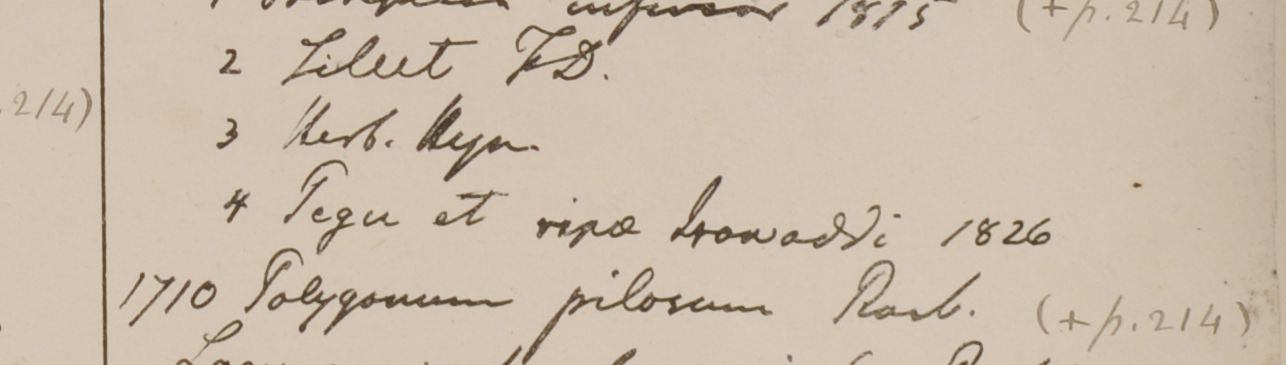 inferior 1815 (+p.214)
2 Silhet FD.
214)
3 Herb. Heyn.
4 Pegu et ripæ Irawaddi 1826
1710 Polygonum pilosum Roxb. (+p.214)